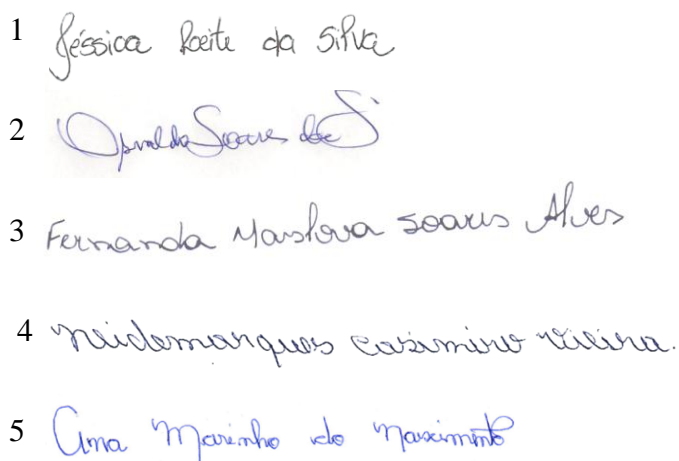 1 Jéssica Leite da Silva
2 Osvaldo Soares da S
3 Fernanda Soares Alves
4 Neidemarques Casimiro Vieira.
5 Ana Marinho do Nascimento